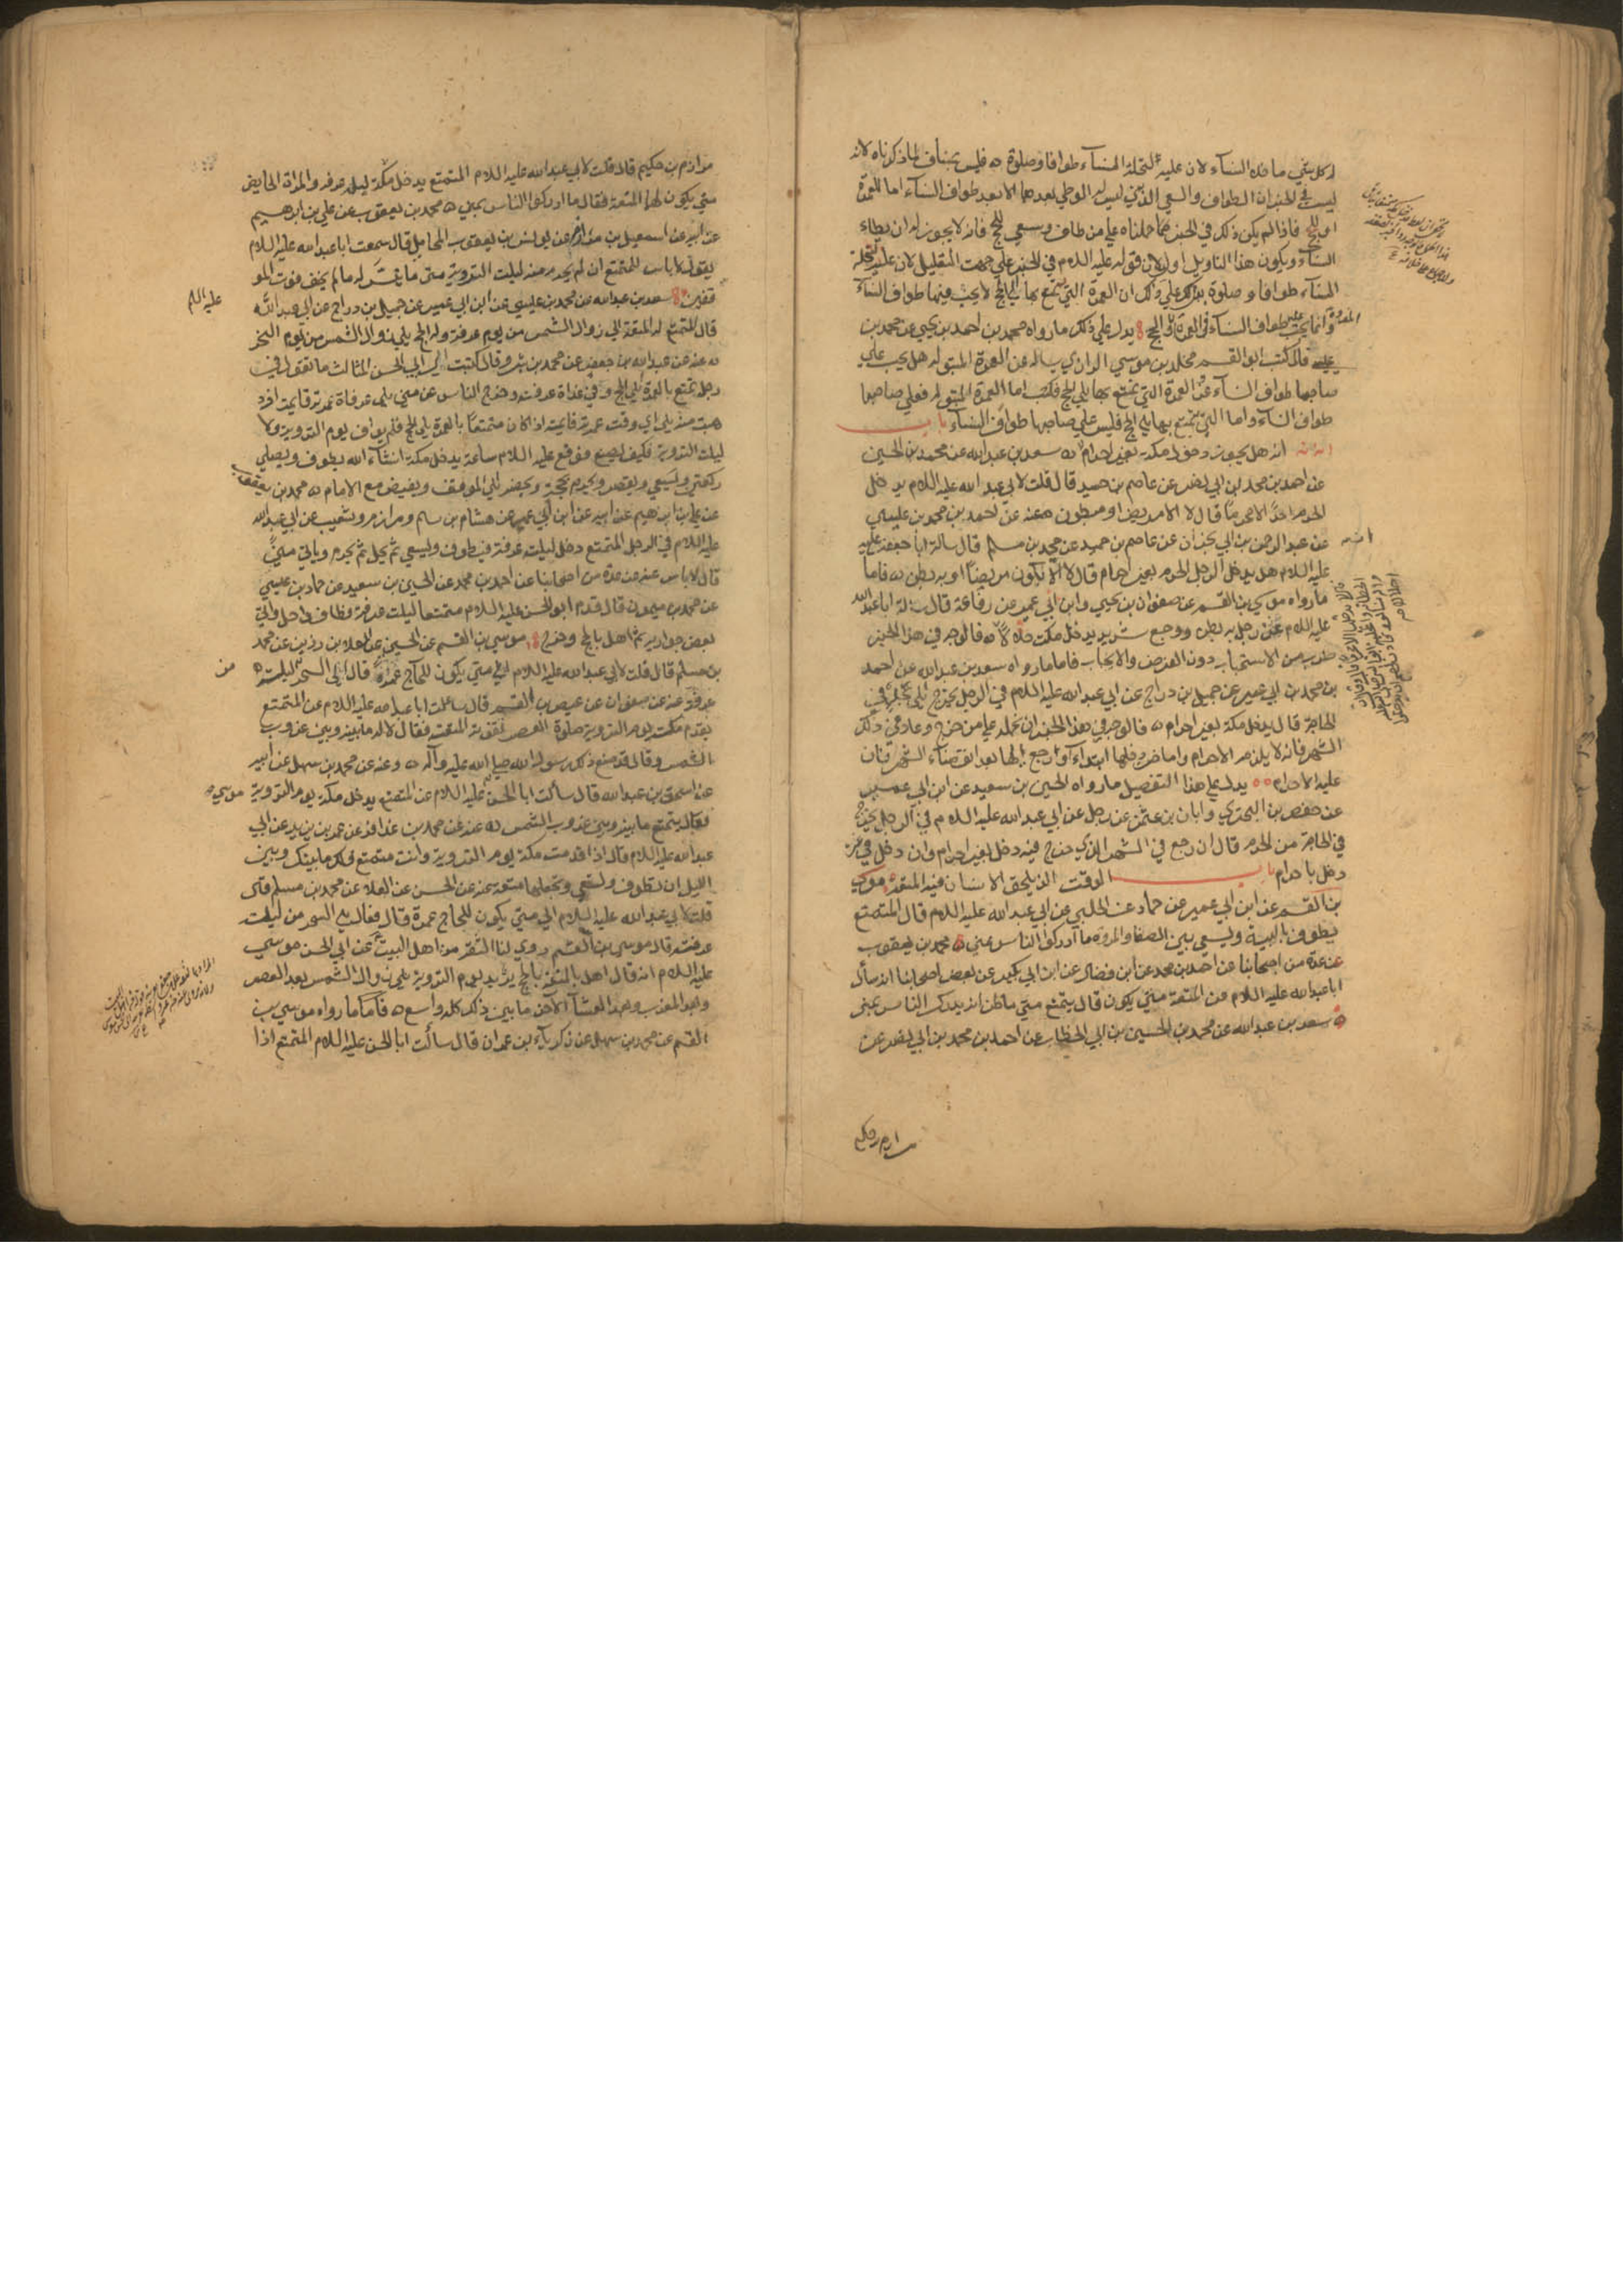 له كل شي ما خلا النساء لان عليه لتحلة النساء طوافا وصلوة ه فليس بمناف لما ذكرناه لانه
ليس في الخبر ان الطواف والسعي الذي ليس له الوطي بعدهما الا بعد طواف النساء اما للعمرة
او للحج فاذا لم يكن ذلك في الخبر حملناه علي من طاف وسعي للحج فانه لا يجوز له ان يطاء
النساء ويكون هذا التاويل اولي لان قوله عليه اللام في الخبر علي جهت التقليل لان عليه لتحلة
النساء طوافا وصلوة يدلك علي ذلك ان العمرة التي يتمتع بها الي الحج لا يجب فيها طواف النساء
وانما يجب عليه طواف النساء في العمرة او الحج يدل علي ذلك ما رواه محمد بن احمد بن يحيي عن محمد بن
عيسي قال كتب ابو القسم مخلد بن موسي الرازي يساله عن العمرة المبتوله هل يجب علي
صاحبها طواف النساء وعن العمرة التي يتمتع بها الي الحج فكتب اما العمرة المبتوله فعلي صاحبها
طواف النساء واما التي يتمتع بها الي الحج فليس علي صاحبها طواف النساء باب
انه هل يجوز دخول مكة بغير احرام ه سعد بن عبدالله عن محمد بن الحسين
عن احمد بن محمد بن ابي نصر عن عاصم بن حميد قال قلت لابي عبد الله عليه اللام يدخل
الحرم احد الا محرما قال لا الا مريض او مبطون ه عنه عن احمد بن محمد بن عيسي
عن عبد الرحمن بن ابي نجران عن عاصم بن حميد عن محمد بن مسلم قال سالت ابا جعفر عليه
عليه اللام هل يدخل الرجل الحرم بغير احرام قال لا الا ان يكون مريضا او به بطن ه فاما
ما رواه موسي بن القسم عن صفوان بن يحيي وابن ابي عمير عن رفاعة قال سالت ابا عبد الله
عليه اللام عن رجل به بطن ووجع شديد يدخل مكت حلالا ه فالوجه في هذا الخبر
ضرب من الاستحباب دون الفرض والايجاب فاما ما رواه سعد بن عبد الله عن احمد
بن محمد بن ابي عمير عن جميل بن دراج عن ابي عبد الله عليه اللام في الرجل يخرج الي جدة في
الحاجة قال يدخل مكة بغير احرام ه فالوجه في هذا الخبر ان نحمله علي من خرج وعاد في ذلك
الشهر فانه لا يلزمه الاحرام واما من دخلها ابتداء او رجع اليها بعد انقضاء الشهر فان
عليه الاحرام ه ه يدل علي هذا التفصيل ما رواه الحسين بن سعيد عن ابن ابي عمير
عن حفص بن البختري وابان بن عثمن عن رجل عن ابي عبد الله عليه اللام في الرجل يخرج
في الحاجة من الحرم قال ان رجع في الشهر الذي خرج فيه دخل بغير احرام وان دخل في غيره
دخل باحرام باب الوقت الذي يلحق الانسان فيه المتعة ه موسي
بن القسم عن ابن ابي عمير عن حماد عن الحلبي عن ابي عبد الله عليه اللام قال المتمتع
يطوف بالبيت ويسعي بين الصفا والمروة ما ادرك الناس بمني ه محمد بن يعقوب
عن عدة من اصحابنا عن احمد بن محمد عن ابن فضال عن ابن ابي بكير عن بعض اصحابنا انه سأل
ابا عبد الله عليه اللام عن المتعة متي يكون قال يتمتع متي ما ظن انه يدرك الناس بمني
ه سعد بن عبد الله عن محمد بن الحسين بن ابي الخطاب عن احمد بن محمد بن ابي نصر عن
مرازم بن حكيم
مرازم بن حكيم قال قلت لابي عبد الله عليه اللام المتمتع يدخل مكة ليلة عرفه والمراة الحايض
متي يكون لها المتعة فقال ما ادركوا الناس بمني ه محمد بن يعقوب عن علي بن ابرهيم
عن ابيه عن اسمعيل بن مرار عن يونس بن يعقوب المحاملي قال سمعت ابا عبد الله عليه اللام
يقول لا باس للمتمتع ان لم يحرم من ليلت التروية متي ما تيسر له ما لم يخف فوت المو
قفين سعد بن عبد الله عن محمد بن عيسي عن ابن ابي عمير عن جميل بن دراج عن ابي عبد الله
عليه اللم
قال المتمتع له المتعة الي زوال الشمس من يوم عرفة وله الحج الي زوال الشمس من يوم النحر
ه عنه عن عبد الله بن جعفر عن محمد بن سرو قال كتبت الي ابي الحسن الثالث ما تقول في
رجل تمتع بالعمرة الي الحج وافي غداة عرفت وخرج الناس من مني الي عرفاة عمرته قايمة او قد
ذهبت منه الي اي وقت عمرته قايمت اذا كان متمتعا بالعمرة الي الحج فلم يواف يوم التروية ولا
ليلت التروية فكيف يصنع فوقع عليه اللام ساعة يدخل مكة انشاء الله يطوف ويصلي
ركعتين ويسعي ويقصر ويحرم بحجته ويخرج الي الموقف ويفيض مع الامام ه محمد بن يعقوب
عن علي بن ابرهيم عن ابيه عن ابن ابي عمير عن هشام بن سالم ومرازم وشعيب عن ابي عبد الله
عليه اللام في الرجل المتمتع دخل ليلت عرفة فيطوف ويسعي ثم يحل ثم يحرم وياتي مني
قال لا باس عنه عن عدة من اصحابنا عن احمد بن محمد عن الحسين بن سعيد عن حماد بن عيسي
عن محمد بن ميمون قال قدم ابو الحسن عليه اللام متمتعا ليلت عرفة فطاف واحل واتي
بعض جواريه ثم اهل بالحج وخرج موسي بن القسم عن الحسن عن العلا بن رزين عن محمد
بن مسلم قال قلت لابي عبد الله عليه اللام الي متي يكون للحاج عمرة قال الي السحر من ليلت
عرفة عنه عن صفوان عن عيص بن القسم قال سالت ابا عبد الله عليه اللام عن المتمتع
يقدم مكت يوم التروية صلوة العصر تفوته المتعة فقال لا له ما بينه وبين غروب
الشمس وقال قد صنع ذلك رسول الله صلي الله عليه وآله ه وعنه عن محمد بن سهل عن ابيه
عن اسحق بن عبد الله قال سألت ابا الحسن موسي عليه اللام عن المتمتع يدخل مكة يوم التروية
فقال يتمتع ما بينه وبين غروب الشمس ه عنه عن محمد بن عذافر عن عمر بن يزيد عن ابي
عبد الله عليه اللام قال اذا قدمت مكة يوم التروية وانت متمتع فلك ما بينك وبين
الليل ان تطوف وتسعي وتجعلها متعة عنه عن الحسن عن العلاء عن محمد بن مسلم قال
قلت لابي عبد الله عليه اللام الي متي يكون للحاج عمرة قال فقال الي السحر من ليلت
عرفت قال موسي بن القسم روي لنا الثقة من اهل البيت عن ابي الحسن موسي
عليه اللام انه قال اهل بالمتعة بالحج يريد يوم التروية الي زوال الشمس بعد العصر
وبعد المغرب وبعد العشاء الآخرة ما بين ذلك كله واسع ه فأما ما رواه موسي بن
القسم عن محمد بن سهل عن زكرياء بن عمران قال سألت ابا الحسن عليه اللام المتمتع اذا